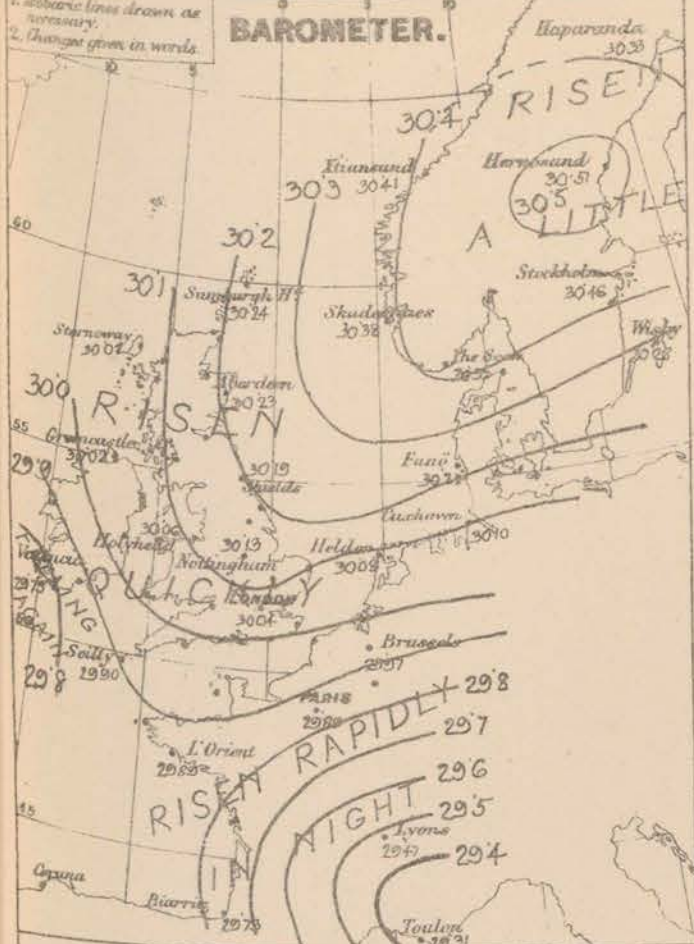 1. Isobaric lines drawn as
necessary.
2. Changes given in words.
BAROMETER.
10
5
0
5
10
Haparanda
30·33
RISE
30·4
Xtiansund
30·41
Hernosand
30·51
30·5
30·3
A LITTLE
60
30·2
Stockholm
30·46
30·1
Sumburgh Hd
30·24
Skudesnaes
30·38
Wisby
30·28
Stornoway
30·02
The Scaw
30·0
Aberdeen
30·23
RISEN
55
Greencastle
30·02
29·9
30·19
Shields
Fanö
Cuxhaven
30·10
30·06
Holyhead
30·13
Nottingham
Helder
30·09
QUICKLY
LONDON
30·04
Valencia
AGAIN
Brussels
29·97
Scilly
29·90
29·8
29·8
PARIS
29·7
L'Orient
RISEN RAPIDLY
29·6
IN NIGHT
29·5
45
Lyons
29·47
29·4
Coruna
Biarritz
29·73
Toulon
29·31